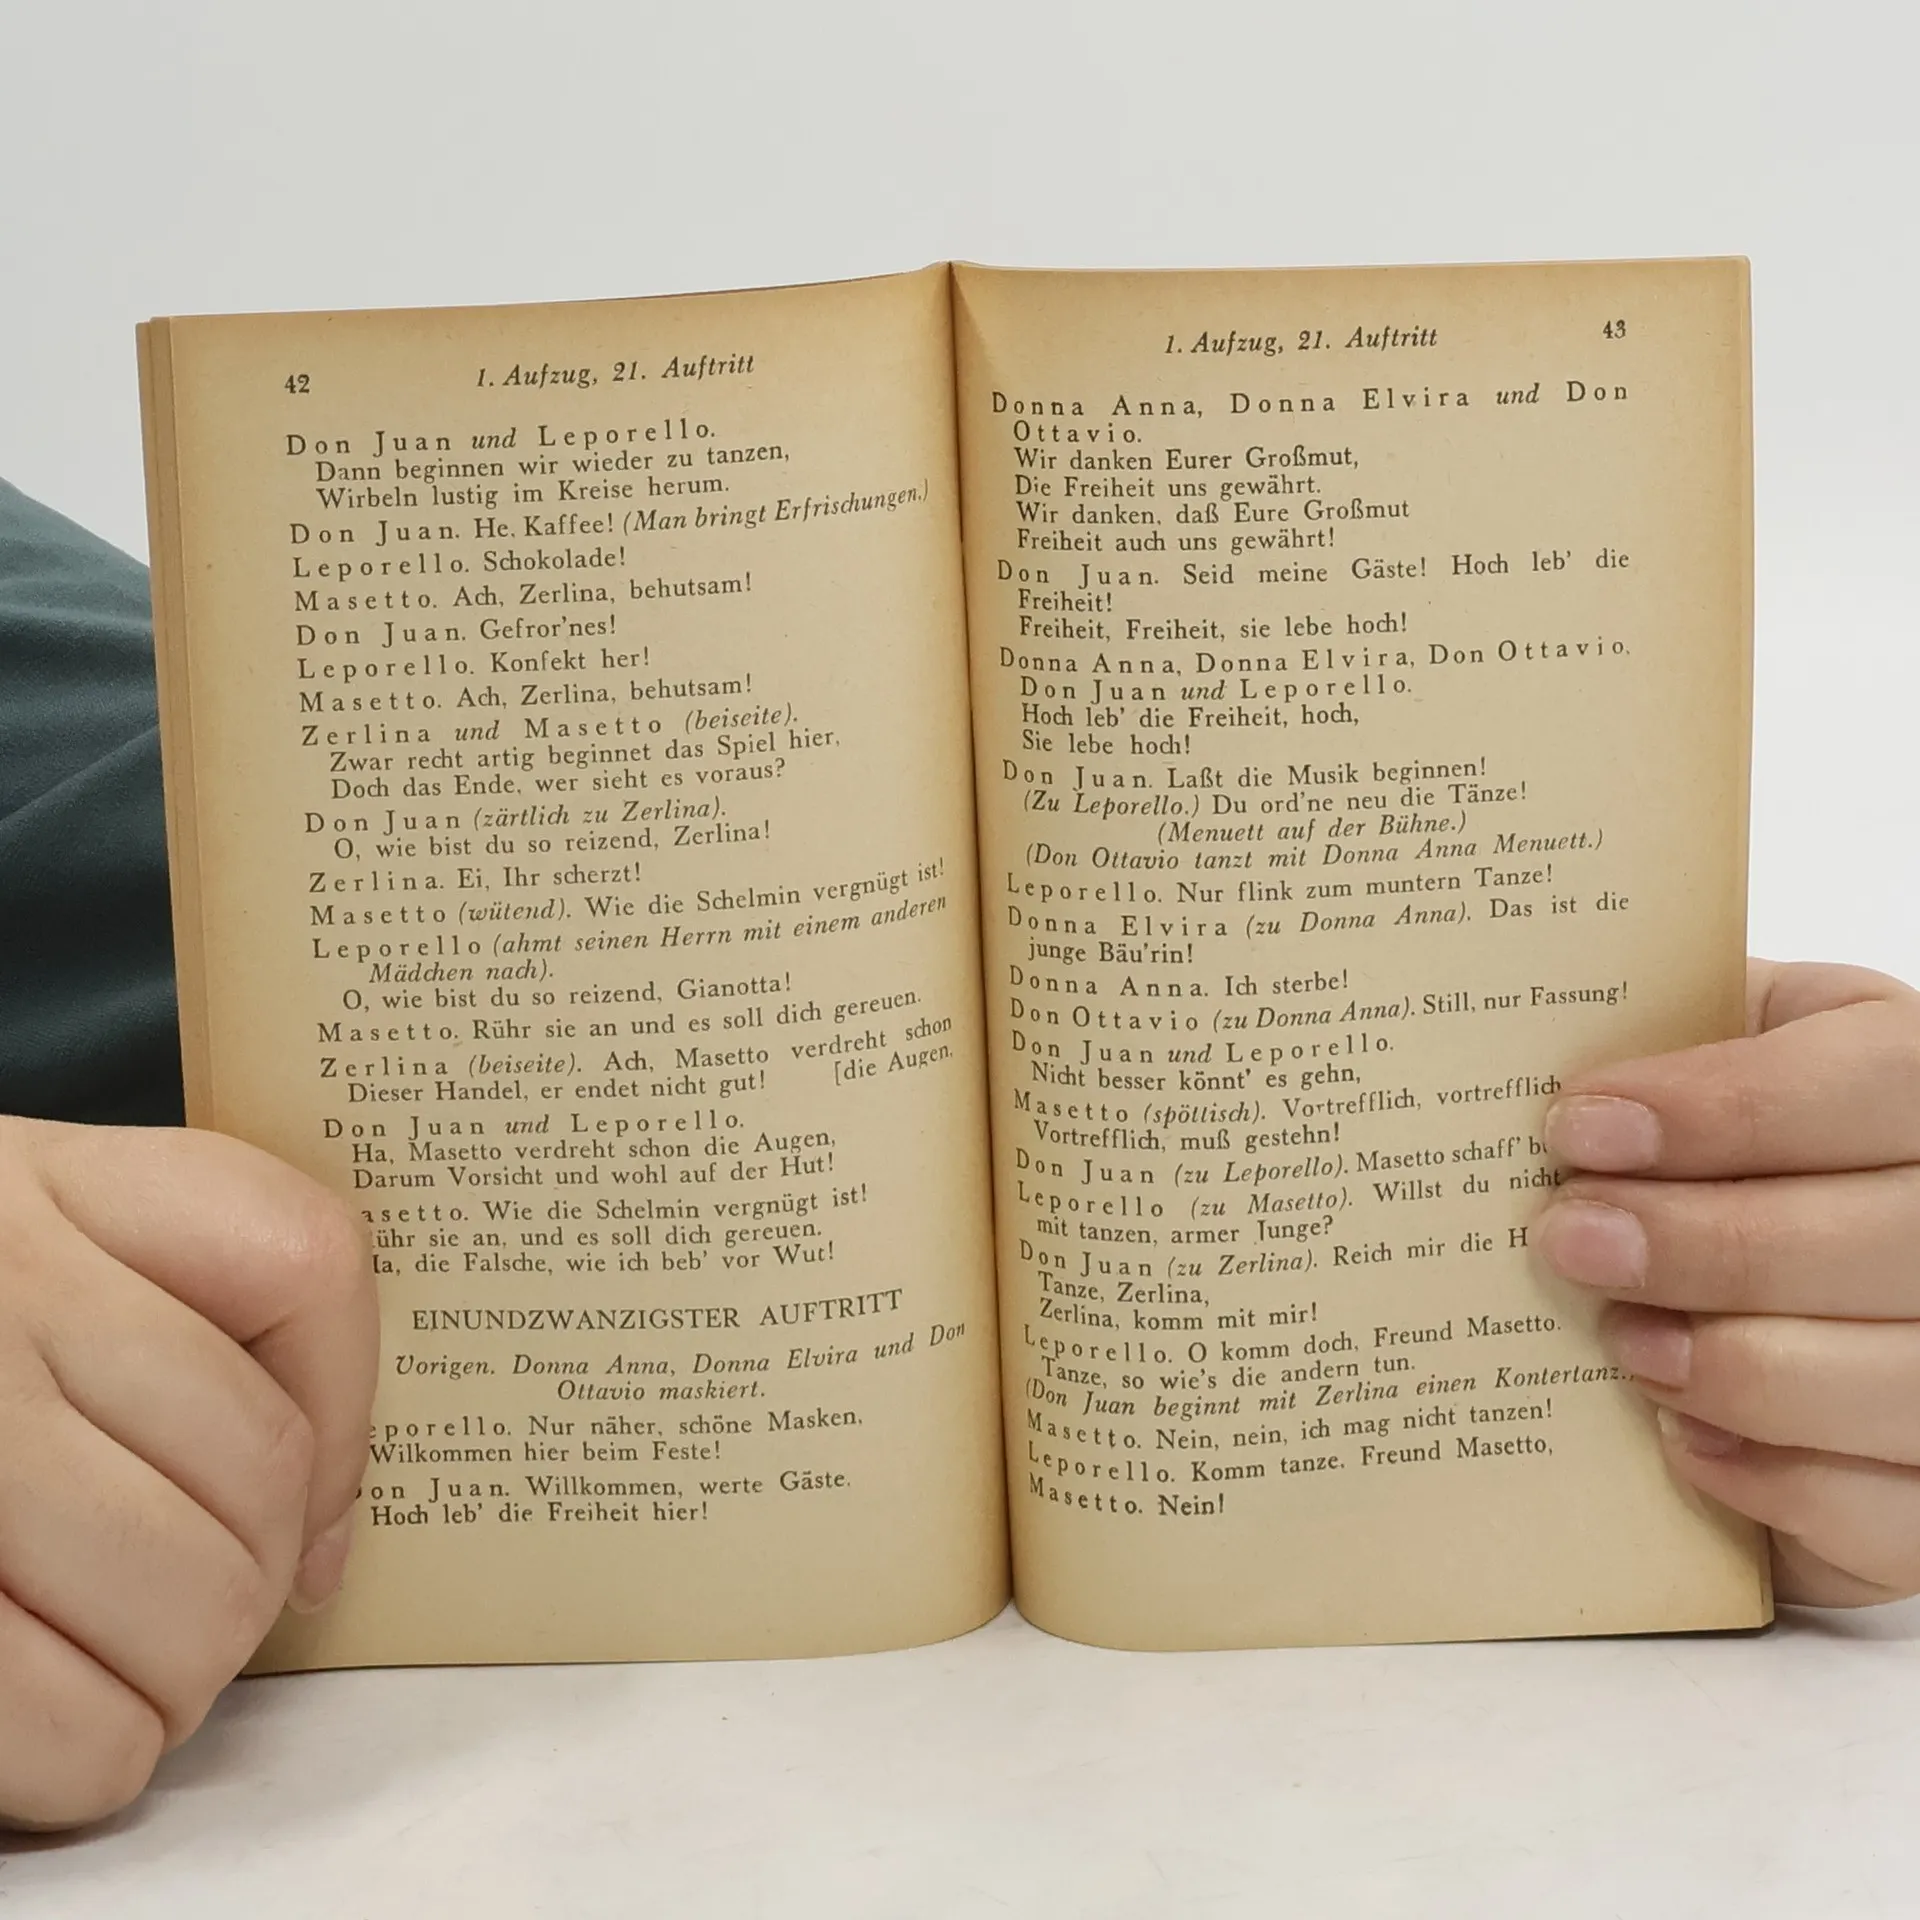 42
1. Aufzug, 21. Auftritt
Don Juan und Leporello.
Dann beginnen wir wieder zu tanzen,
Wirbeln lustig im Kreise herum.
Don Juan. He, Kaffee! (Man bringt Erfrischungen.)
Leporello. Schokolade!
Masetto. Ach, Zerlina, behutsam!
Don Juan. Gefror'nes!
Leporello. Konfekt her!
Masetto. Ach, Zerlina, behutsam!
Zerlina und Masetto (beiseite).
Zwar recht artig beginnet das Spiel hier,
Doch das Ende, wer sieht es voraus?
Don Juan (zärtlich zu Zerlina).
O, wie bist du so reizend, Zerlina!
Zerlina. Ei, Ihr scherzt!
Masetto (wütend). Wie die Schelmin vergnügt ist!
Leporello (ahmt seinen Herrn mit einem anderen
Mädchen nach).
O, wie bist du so reizend, Gianotta!
Masetto. Rühr sie an und es soll dich gereuen.
Zerlina (beiseite). Ach, Masetto verdreht schon
Dieser Handel, er endet nicht gut! [die Augen,
Don Juan und Leporello.
Ha, Masetto verdreht schon die Augen,
Darum Vorsicht und wohl auf der Hut!
asetto. Wie die Schelmin vergnügt ist!
ühr sie an, und es soll dich gereuen.
a, die Falsche, wie ich beb' vor Wut!
EINUNDZWANZIGSTER AUFTRITT
Vorigen. Donna Anna, Donna Elvira und Don
Ottavio maskiert.
eporello. Nur näher, schöne Masken,
Wilkommen hier beim Feste!
on Juan. Willkommen, werte Gäste.
Hoch leb' die Freiheit hier!
1. Aufzug, 21. Auftritt
43
Donna Anna, Donna Elvira und Don
Ottavio.
Wir danken Eurer Großmut,
Die Freiheit uns gewährt.
Wir danken, daß Eure Großmut
Freiheit auch uns gewährt!
Don Juan. Seid meine Gäste! Hoch leb' die
Freiheit!
Freiheit, Freiheit, sie lebe hoch!
Donna Anna, Donna Elvira, Don Ottavio,
Don Juan und Leporello.
Hoch leb' die Freiheit, hoch,
Sie lebe hoch!
Don Juan. Laßt die Musik beginnen!
(Zu Leporello.) Du ord'ne neu die Tänze!
(Menuett auf der Bühne.)
(Don Ottavio tanzt mit Donna Anna Menuett.)
Leporello. Nur flink zum muntern Tanze!
Donna Elvira (zu Donna Anna). Das ist die
junge Bäu'rin!
Donna Anna. Ich sterbe!
Don Ottavio (zu Donna Anna). Still, nur Fassung!
Don Juan und Leporello.
Nicht besser könnt' es gehn,
Masetto (spöttisch). Vortrefflich, vortrefflich
Vortrefflich, muß gestehn!
Don Juan (zu Leporello). Masetto schaff'
Leporello (zu Masetto). Willst du nicht
mit tanzen, armer Junge?
Don Juan (zu Zerlina). Reich mir die H
Tanze, Zerlina,
Zerlina, komm mit mir!
Leporello. O komm doch, Freund Masetto.
Tanze, so wie's die andern tun.
(Don Juan beginnt mit Zerlina einen Kontertanz.)
Masetto. Nein, nein, ich mag nicht tanzen!
Leporello. Komm tanze, Freund Masetto,
Masetto. Nein!